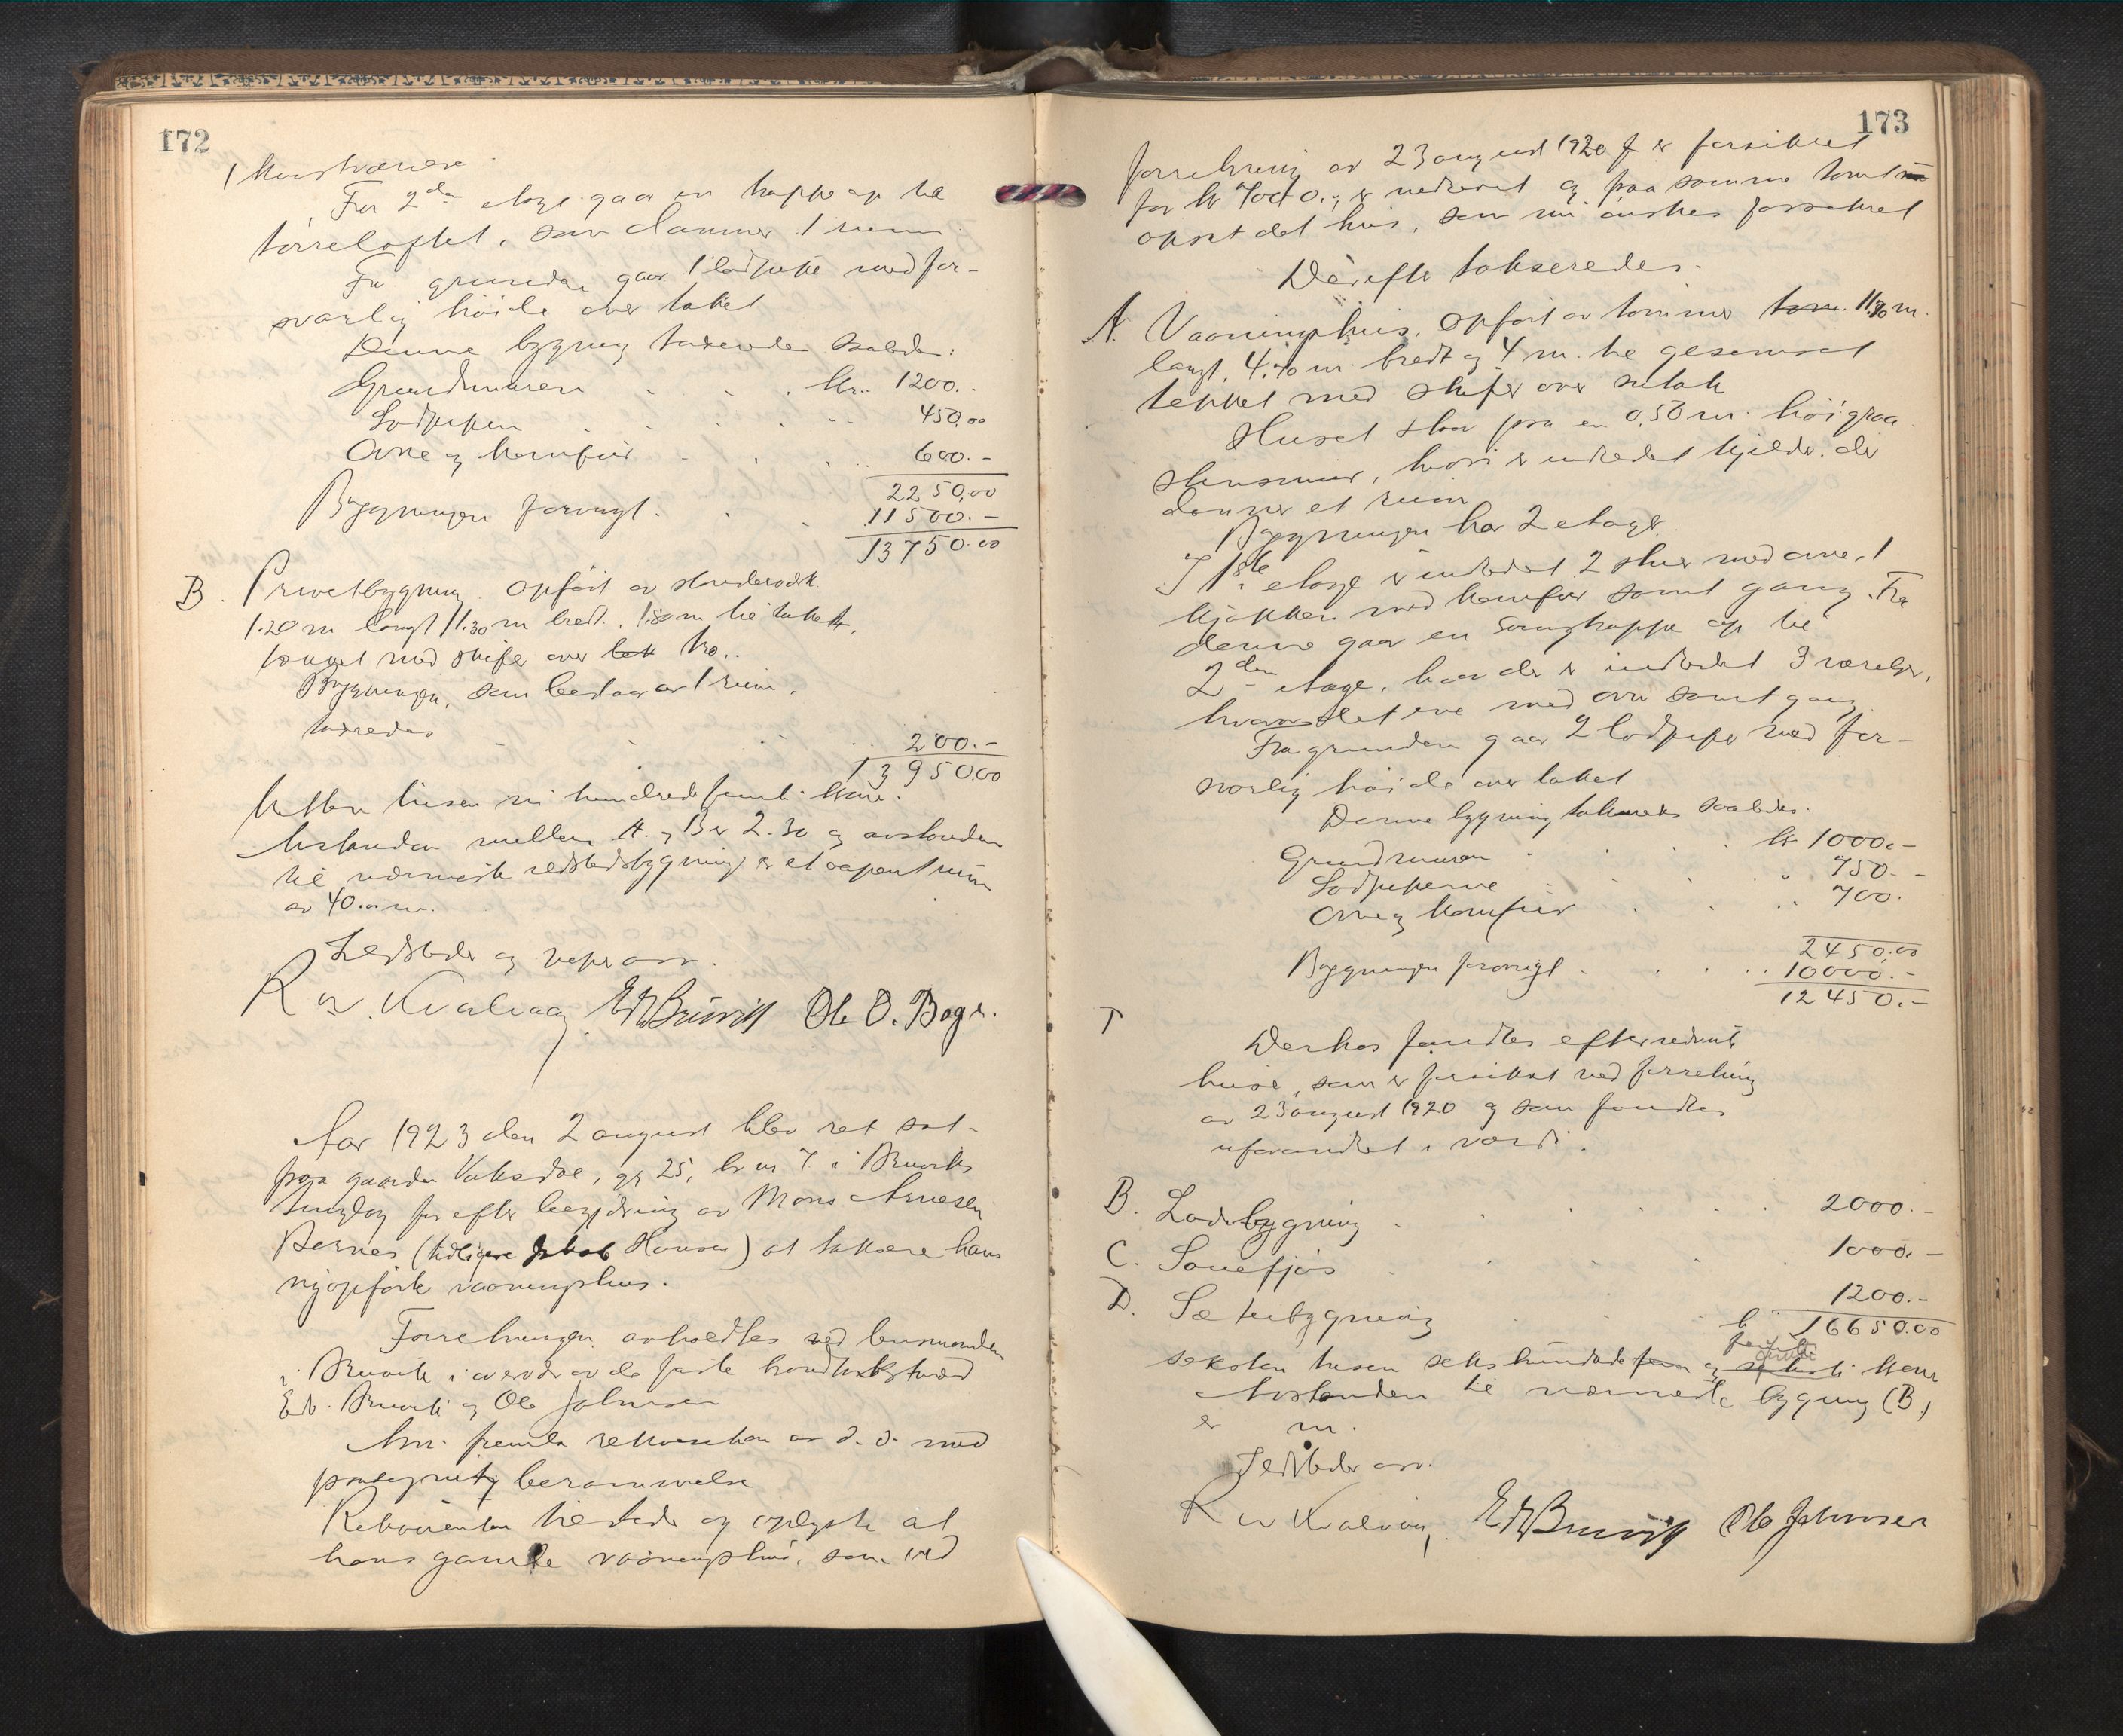 172
1 
Fra 2den etage gaar en trappe op til
tørreloftet, som danner 1 rum.
Fra grunden gaar 1 lodpipe med for-
svarlig høide over taket
Denne bygning taxeredes saaledes:
Grundmuren . . . kr. 1200.-
Lodpipen . . . 450,00
Ovne og komfur . . . 600.-
2250,00
Bygningen forøvrigt . . . 11500.-
13750.00
B. Privetbygning. Opført av stenderverk
1.20 m langt 1.30 m bredt, 1.80 m til taket,
tækket med skifer over tro..
Bygningen, som bestaar av 1 rum,
taxredes . . . 200.-
13950.00
tretten tusen ni hundrede femti kroner.
Avstanden mellem A. og B er 2.30 og avstanden
til nærmeste ildstedsbygning er et aapent rum
av 40 m.
Ildsteder og piper
R Kvalvaag E Bruvik Ole O. Boge.
Aar 1923 den 2 august blev ret sat
paa gaarden Vaksdal, gr 25, br nr 7 i Bruviks
tinglag for efter begjæring av Mons Arnesen
Bernes (tidligere Jakob Hansen) at taksere hans
nyopførte vaaningshus.
Forretningen avholdtes ved lensmanden
i Bruvik i nærvær av de faste branntakstmænd
Ed. Bruvik og Ole Johnsen
Adm. fremla rekvisition av d. d. med
paategnet berammelse
Rekvirenten tilstede og oplyste at
hans gamle vaaningshus, som ved
173
forretning av 23 august 1920 er forsikret
for kr 7000., er nedrevet og paa samme tomt
opsat det hus, som nu ønskes forsikret
Derefter takseredes.
A. Vaaningshus, opført av tømmer 11,70 m.
langt, 4.70 m. bredt og 4 m. til gesemset
tekket med skifer over sutak
Huset staar paa en 0,50 m. høi graa
stensmur, hvori er indredet kjelder, der
danner et rum
Bygningen har 2 etager.
I 1ste etage er indredet 2 stuer med ovne, 1
kjøkken med komfur samt gang. Fra
denne gaar en svingtrappe op til
2den etage, hvor der er indredet 3 værelser,
hvorav det ene med ovn samt gang
Fra grunden gaar 2 lodpiper med for-
svarlig høide over taket
Denne bygning takseredes saaledes.
Grundmuren . . . kr 1000.-
Lodpiperne . . . " 750.-
Ovne og komfur . . . 700.
2450.00
Bygningen forøvrigt . . . 10000.-
12450.-
T
Derhos fandtes efternevnte
huse, som er forsikret ved forretning
av 23 august 1920 og som fandtes
uforandret i værdi.
B. Ladebygning . . . 2000.-
C. Sauefjøs . . . 1000.-
D. Sæterbygning . . . 1200.-
kr 16650.00
seksten tusen sekshundrede og femti kroner
Avstanden til nærmeste bygning (B)
er m.
Ildsteder
R Kvalvaag, E Bruvik Ole Johnsen